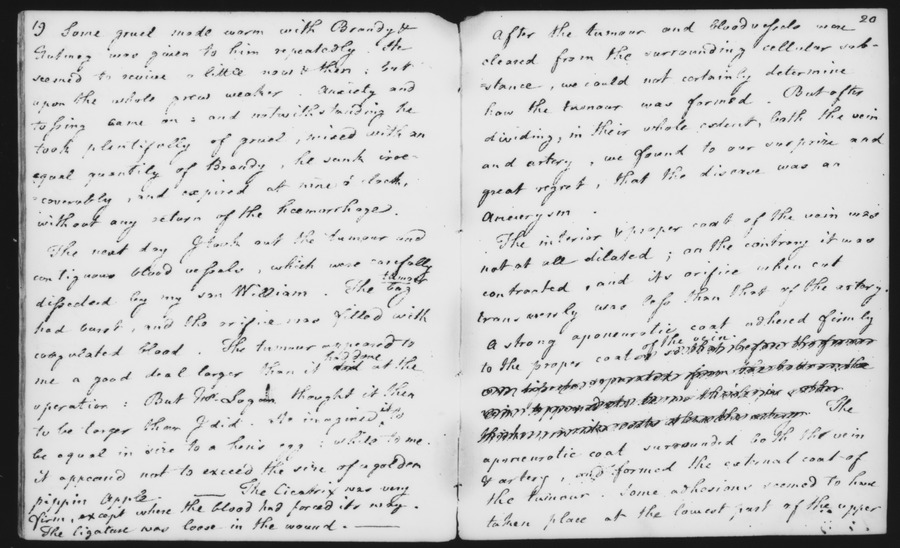 19 Some gruel made warm with Brandy &
Nutmeg was given to him repeatedly. He
seemed to revive a little now & then; but
upon the whole grew weaker. Anxiety and
tossing came on: and notwithstanding he
took plentifully of gruel, mixed with an
equal quantity of Brandy, he sunk irre=
=coverably, and expired at nine o'clock,
without any return of the hæmorrhage.
The next day I took out the tumour and
contiguous blood vessels, which were carefully
dissected by my son William. The bag tumour
had burst, and the orifice was filled with
coagulated blood. The tumour appeared to
me a good deal larger than it did had done at the
operation: But Mr. Logan thought it then
to be larger than I did. He imagined it to
be equal in size to a hen's egg: while to me
it appeared not to exceed the size of a golden
pippin apple. — The Cicatrix was very
firm, except where the blood had forced its way.
The ligature was loose in the wound. —
20
After the tumour and bloodvessels were
cleared from the surrounding cellular sub-
stance, we could not certainly determine
how the tumour was formed. But after
dividing, in their whole extent, both the vein
and artery, we found to our surprize and
great regret, that the disease was an
Aneurysm.
The interior & proper coat of the vein was
not at all dilated; on the contrary it was
contracted, and its orifice when cut
transversely was less than that of the artery.
A strong aponeurotic coat adhered firmly
to the proper coat of the vein
The
aponeurotic coat surrounded both the vein
& artery, and formed the external coat of
the tumour. Some adhesions seemed to have
taken place at the lowest part of the upper